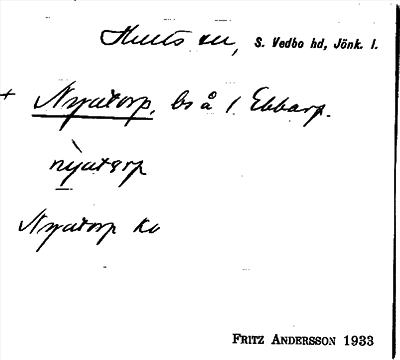 Hults sn, S. Vedbo hd, Jönk. l.
+ Nyatorp, bs å 1 Ebbarp.
nyatorp
Nyatorp Ko
FRITZ ANDERSSON 1933